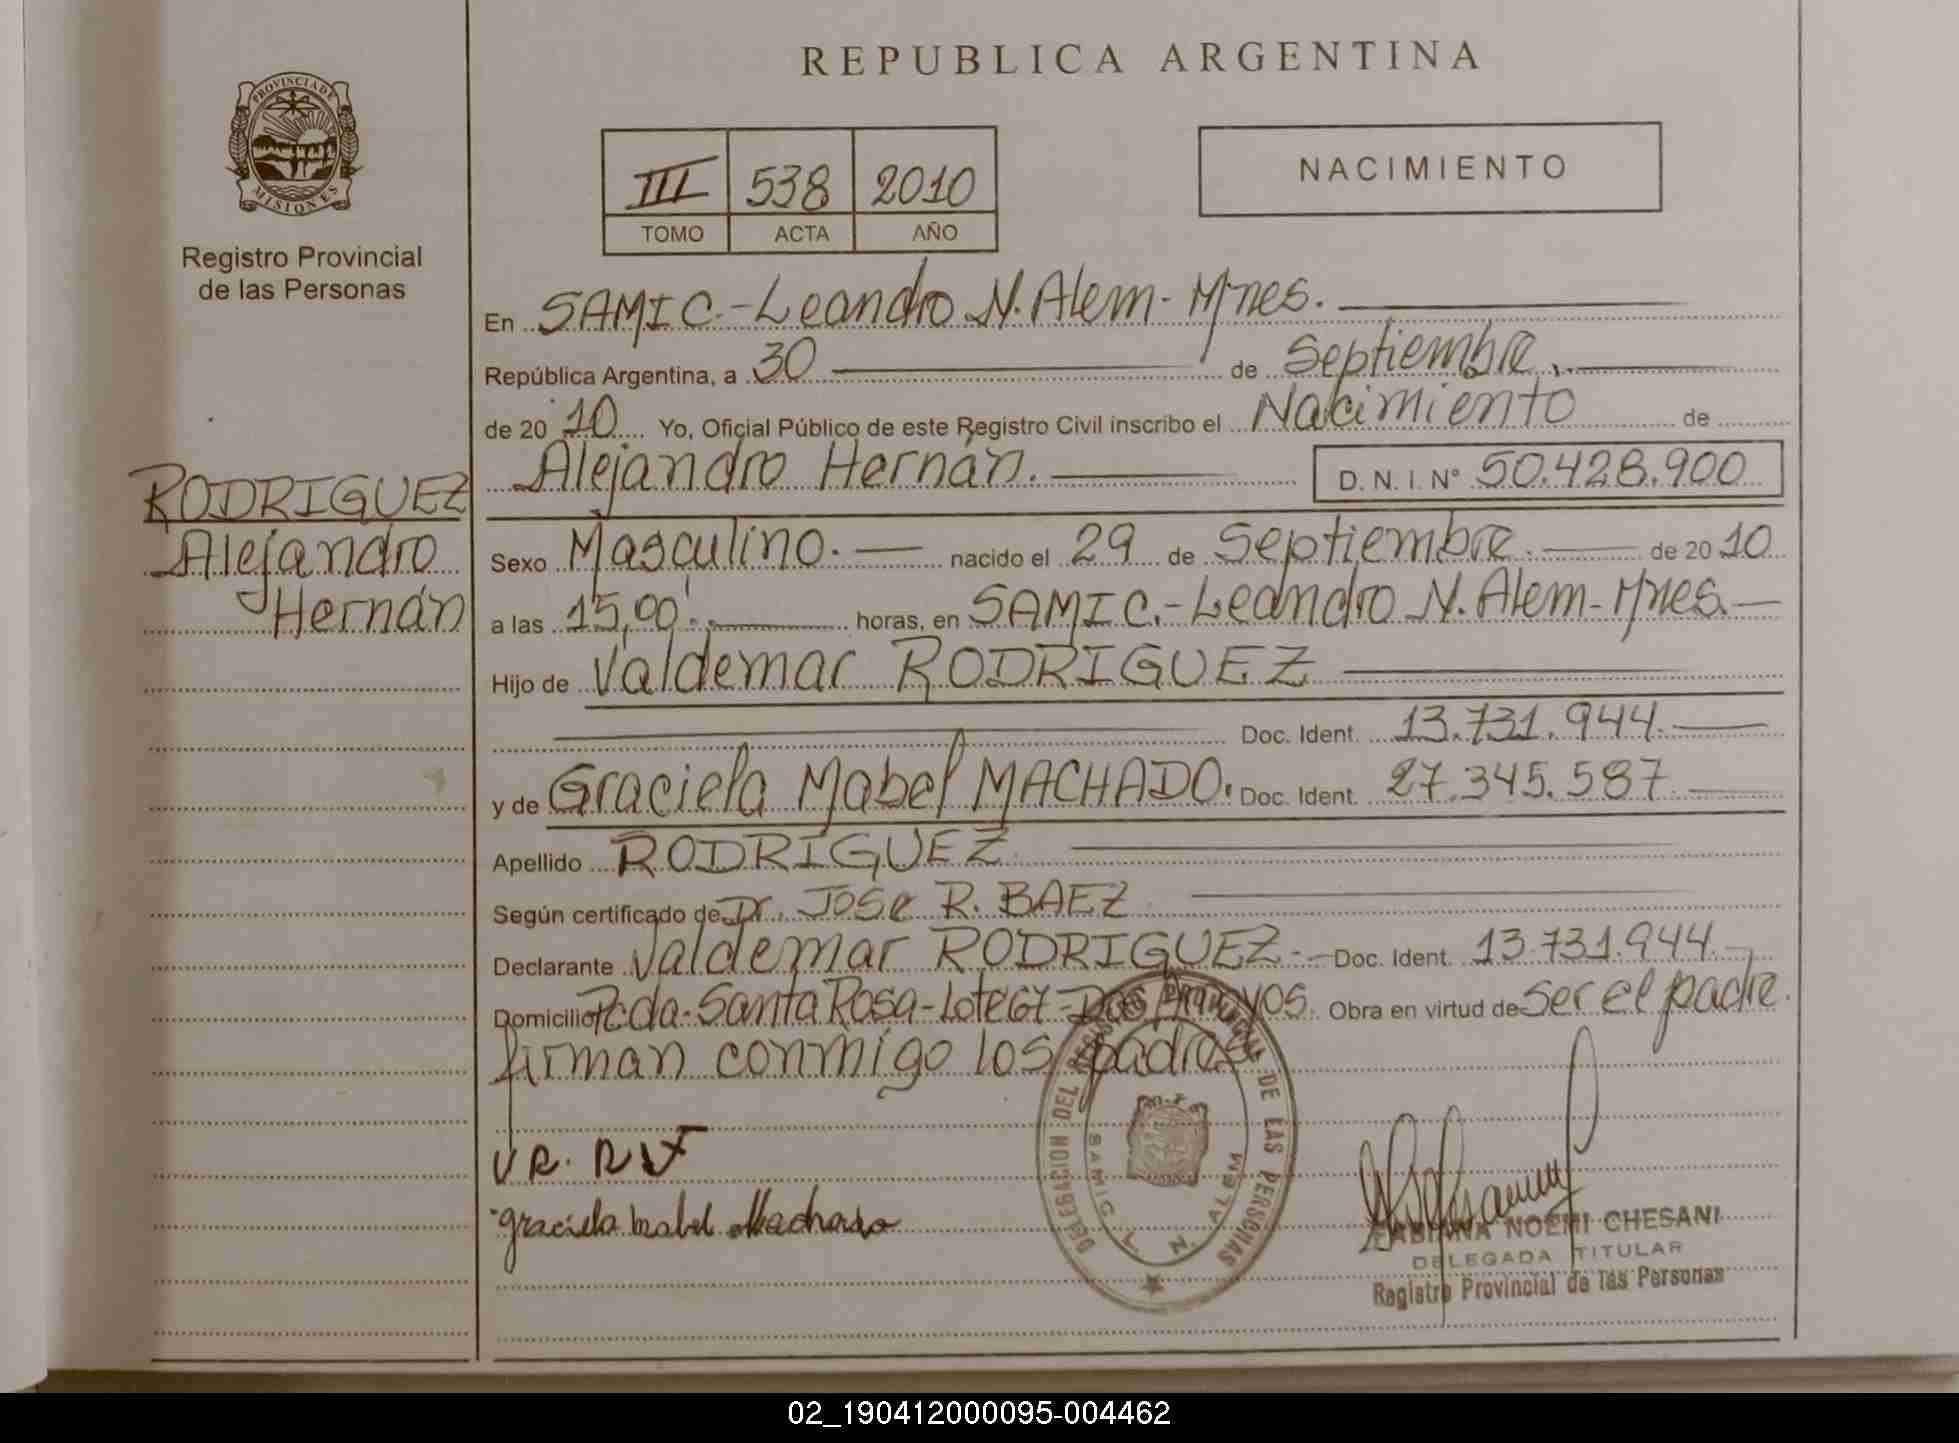 REPUBLICA ARGENTINA
PROVINCIA DE MISIONES
Registro Provincial
de las Personas
III 538 2010
TOMO ACTA AÑO
NACIMIENTO
En SAMIC.-Leandro N. Alem- Mnes.
República Argentina, a 30 de Septiembre.
de 20 10 Yo, Oficial Público de este Registro Civil inscribo el Nacimiento de
Alejandro Hernán. D. N. I. Nº 50.428.900
RODRIGUEZ
Alejandro
Hernán
Sexo Masculino. nacido el 29 de Septiembre. de 20 10
a las 15,00'. horas, en SAMIC.-Leandro N. Alem- Mnes.
Hijo de Valdemar RODRIGUEZ
Doc. Ident. 13.731.944.
y de Graciela Mabel MACHADO. Doc. Ident. 27.345.587.
Apellido RODRIGUEZ.
Según certificado de Dr. Jose R. BAEZ.
Declarante Valdemar RODRIGUEZ.- Doc. Ident. 13.731.944.
Domicilio Pcda. Santa Rosa- Lote 67- Dos Arroyos. Obra en virtud de Ser el padre.
firman conmigo los padres
graciela mabel Machado
DELEGACION DEL REGISTRO PROVINCIAL DE LAS PERSONAS
SAMIC L. N. ALEM
FABIANA NOEMI CHESANI
DELEGADA TITULAR
Registro Provincial de las Personas
02_190412000095-004462